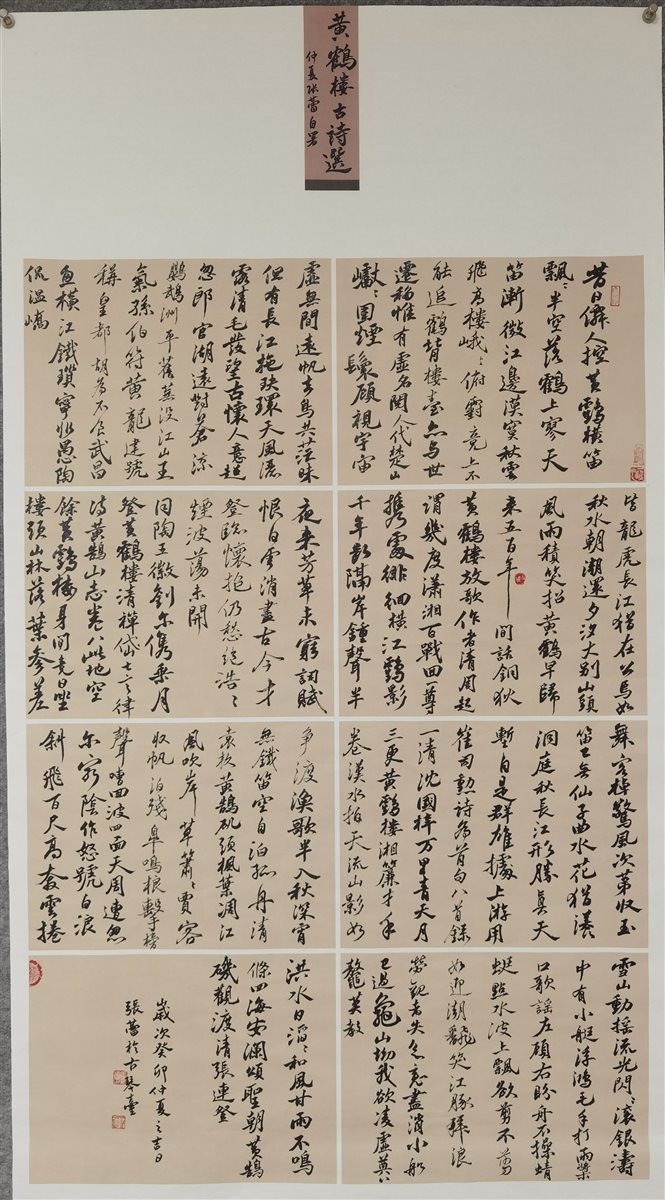 黄鶴樓古詩選
仲夏张蕾自署
昔日僊人控黄鶴橫笛
飄〻半空落鶴上寥天
笛漸微江邊漠寞秋雲
飛高樓峨〻俯霸亮上不
能追鶴背樓臺亦与世
遷移惟有虚名閱人代楚山
巘〻周煙鬟顧視宇宙
虚無間遠帆去鳥共茫昧
但有長江拖玦環天風洒
露清毛發望古懷人意超
忽郎官湖遠對蒼流
鸚鵡洲平舊蕪没江山王
氣孫伯符黄龍建號
稱皇都胡為不食武昌
魚橫江鐵瑣寧非愚陶
侃温嶠
皆龍虎長江猶在公焉如
秋水朝潮還夕汐大别山頭
風雨積笑招黄鶴早歸
来五百年一間話銅狄
黄鶴樓放歌作者清周起
渭幾度瀟湘百戰回尊
攜處徘徊橫江鶴影
千年影隔岸鍾聲半
夜来芳草未窮詞賦
恨白雲消盡古今才
登臨懷抱仍愁絶浩〻
煙波蕩未開
同陶王徵劉尔儁乘月
登黄鶴樓清禪岱七言律
诗黄鵠山志卷八此地空
餘黄鶴樓身間竟日坐
樓頭山林落葉参差
舞容棹驚風次第收玉
笛已無仙子曲水花猶漾
洞庭秋長江形勝真天
塹自是群雄據上游用
崔司勳詩為首句八首録
一清沈國梓万里青天月
三更黄鶴樓湘簾才手
卷漢水拍天流山影如
争渡漁歌半入秋深宵
無鐵笛空自泊孤舟清
袁枚黄鵠矶頭楓葉凋江
風吹岸草蕭〻賈客
収帆泊殘皐鳴桹擊榜
聲嘈四波四面天周連忽
尔窮陰作怒號白浪
斜飛百尺高奔雲捲
雪山動摇流光閃〻滚銀濤
中有小艇浮鴻毛手打兩槳
口歌謠左顧右盼舟不操蜻
蜓點水波上飄欲剪不剪
如迎潮飜笑江豚拜浪
勞観者失色意盡消小船
已過龜山坳我欲凌虚
鰲莫教
洪水日滔〻和風甘雨不鳴
條四海安瀾頌聖朝黄鵠
磯觀渡清張連登
歲次癸卯仲夏之吉日
張蕾於古琴臺